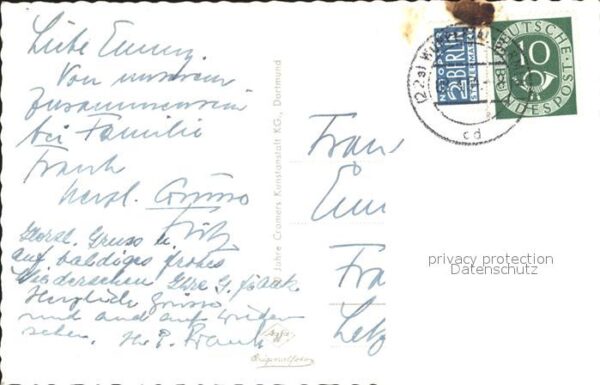 Liebe Emmy.
Von unserem
Zusammensein
bei Familie
Frank
herzl. Grüsse
Fritz
Herzl. Gruss u.
auf baldiges frohes
Wiedersehen Ihre G. Frank
Herzliche Grüsse
und auf wieder
sehen. H. P. Frank
Jahre Cramers Kunstanstalt KG., Dortmund
Originalfoto
NOTOPFER
2 BERLIN
STEUERMARKE
DEUTSCHE
10
BUNDESPOST
(22a) WUPPERTAL
cd
Frau
Em
Fra
privacy protection
Datenschutz